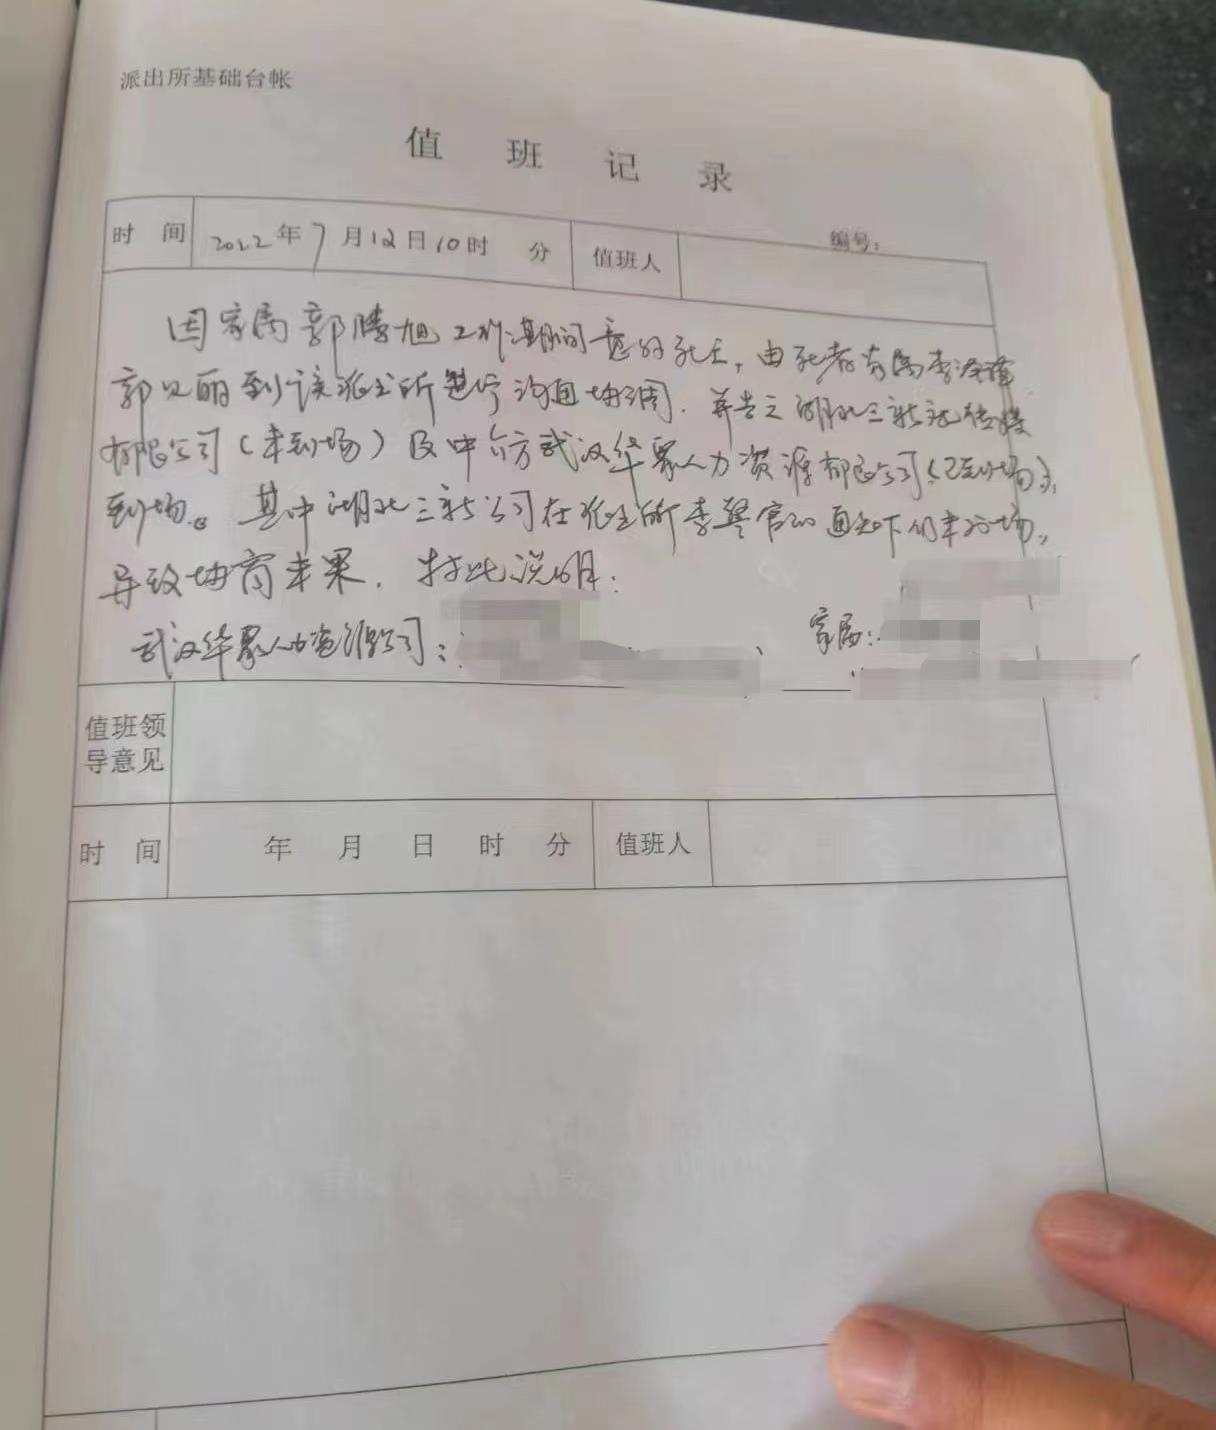 派出所基础台帐
值班记录
编号:
时间 2022年7月12日10时 分 值班人
因家属郭腾旭工作期间意外死亡,由死者家属李
郭见丽到该派出所进行沟通协调.并告之湖北三新
有限公司(未到场)及中介方武汉华聚人力资源有限公司(已到场)
到场。其中湖北三新公司在派出所李警官的通知下仍未到场,
导致协商未果.特此说明:
武汉华聚人力资源公司: 家属:
值班领
导意见
时间 年 月 日 时 分 值班人